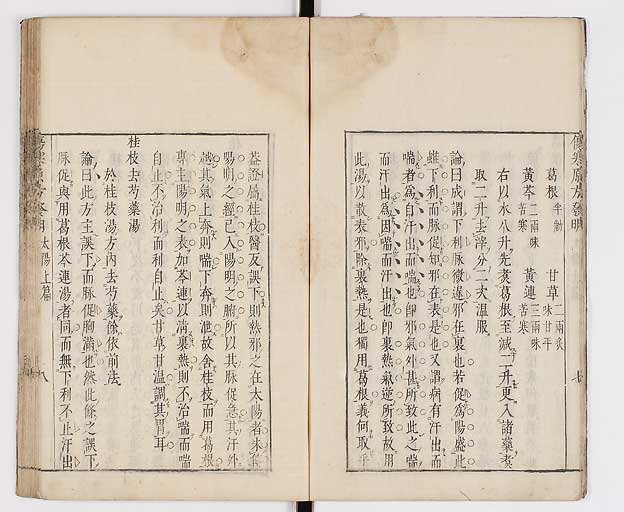 葛根 半觔 甘草 二兩炙 味甘平
黃芩 二兩味苦寒 黃連 三兩味苦寒
右以水八升先煮葛根至減二升更入諸藥煮
取二升去滓分二次溫服
論曰成謂下利脉微遲邪在裏也若促為陽盛此
雖下利而脉促知邪在表是也又謂病有汗出而
喘者為自汗出而喘也即邪氣外甚所致此之喘
而汗出為因喘而汗出也即裏熱氣逆所致故用
此湯以散表邪除裏熱是也獨用葛根義何取乎
蓋證屬桂枝醫反誤下則熱邪之在太陽者未
陽明之經已入陽明之腑所以其脉促急其汗外
越其氣上奔則喘下奔則泄故舍桂枝而用葛根
專主陽明之表加芩連以清裏熱則不治喘而喘
自止不治利而利自止矣甘草甘溫調其胃耳
桂枝去芍藥湯
於桂枝湯方內去芍藥餘依前法
論曰此方主誤下而脉促胸滿也然此條之誤下
脉促與用葛根芩連湯者同而無下利不止汗出
太陽上篇
八